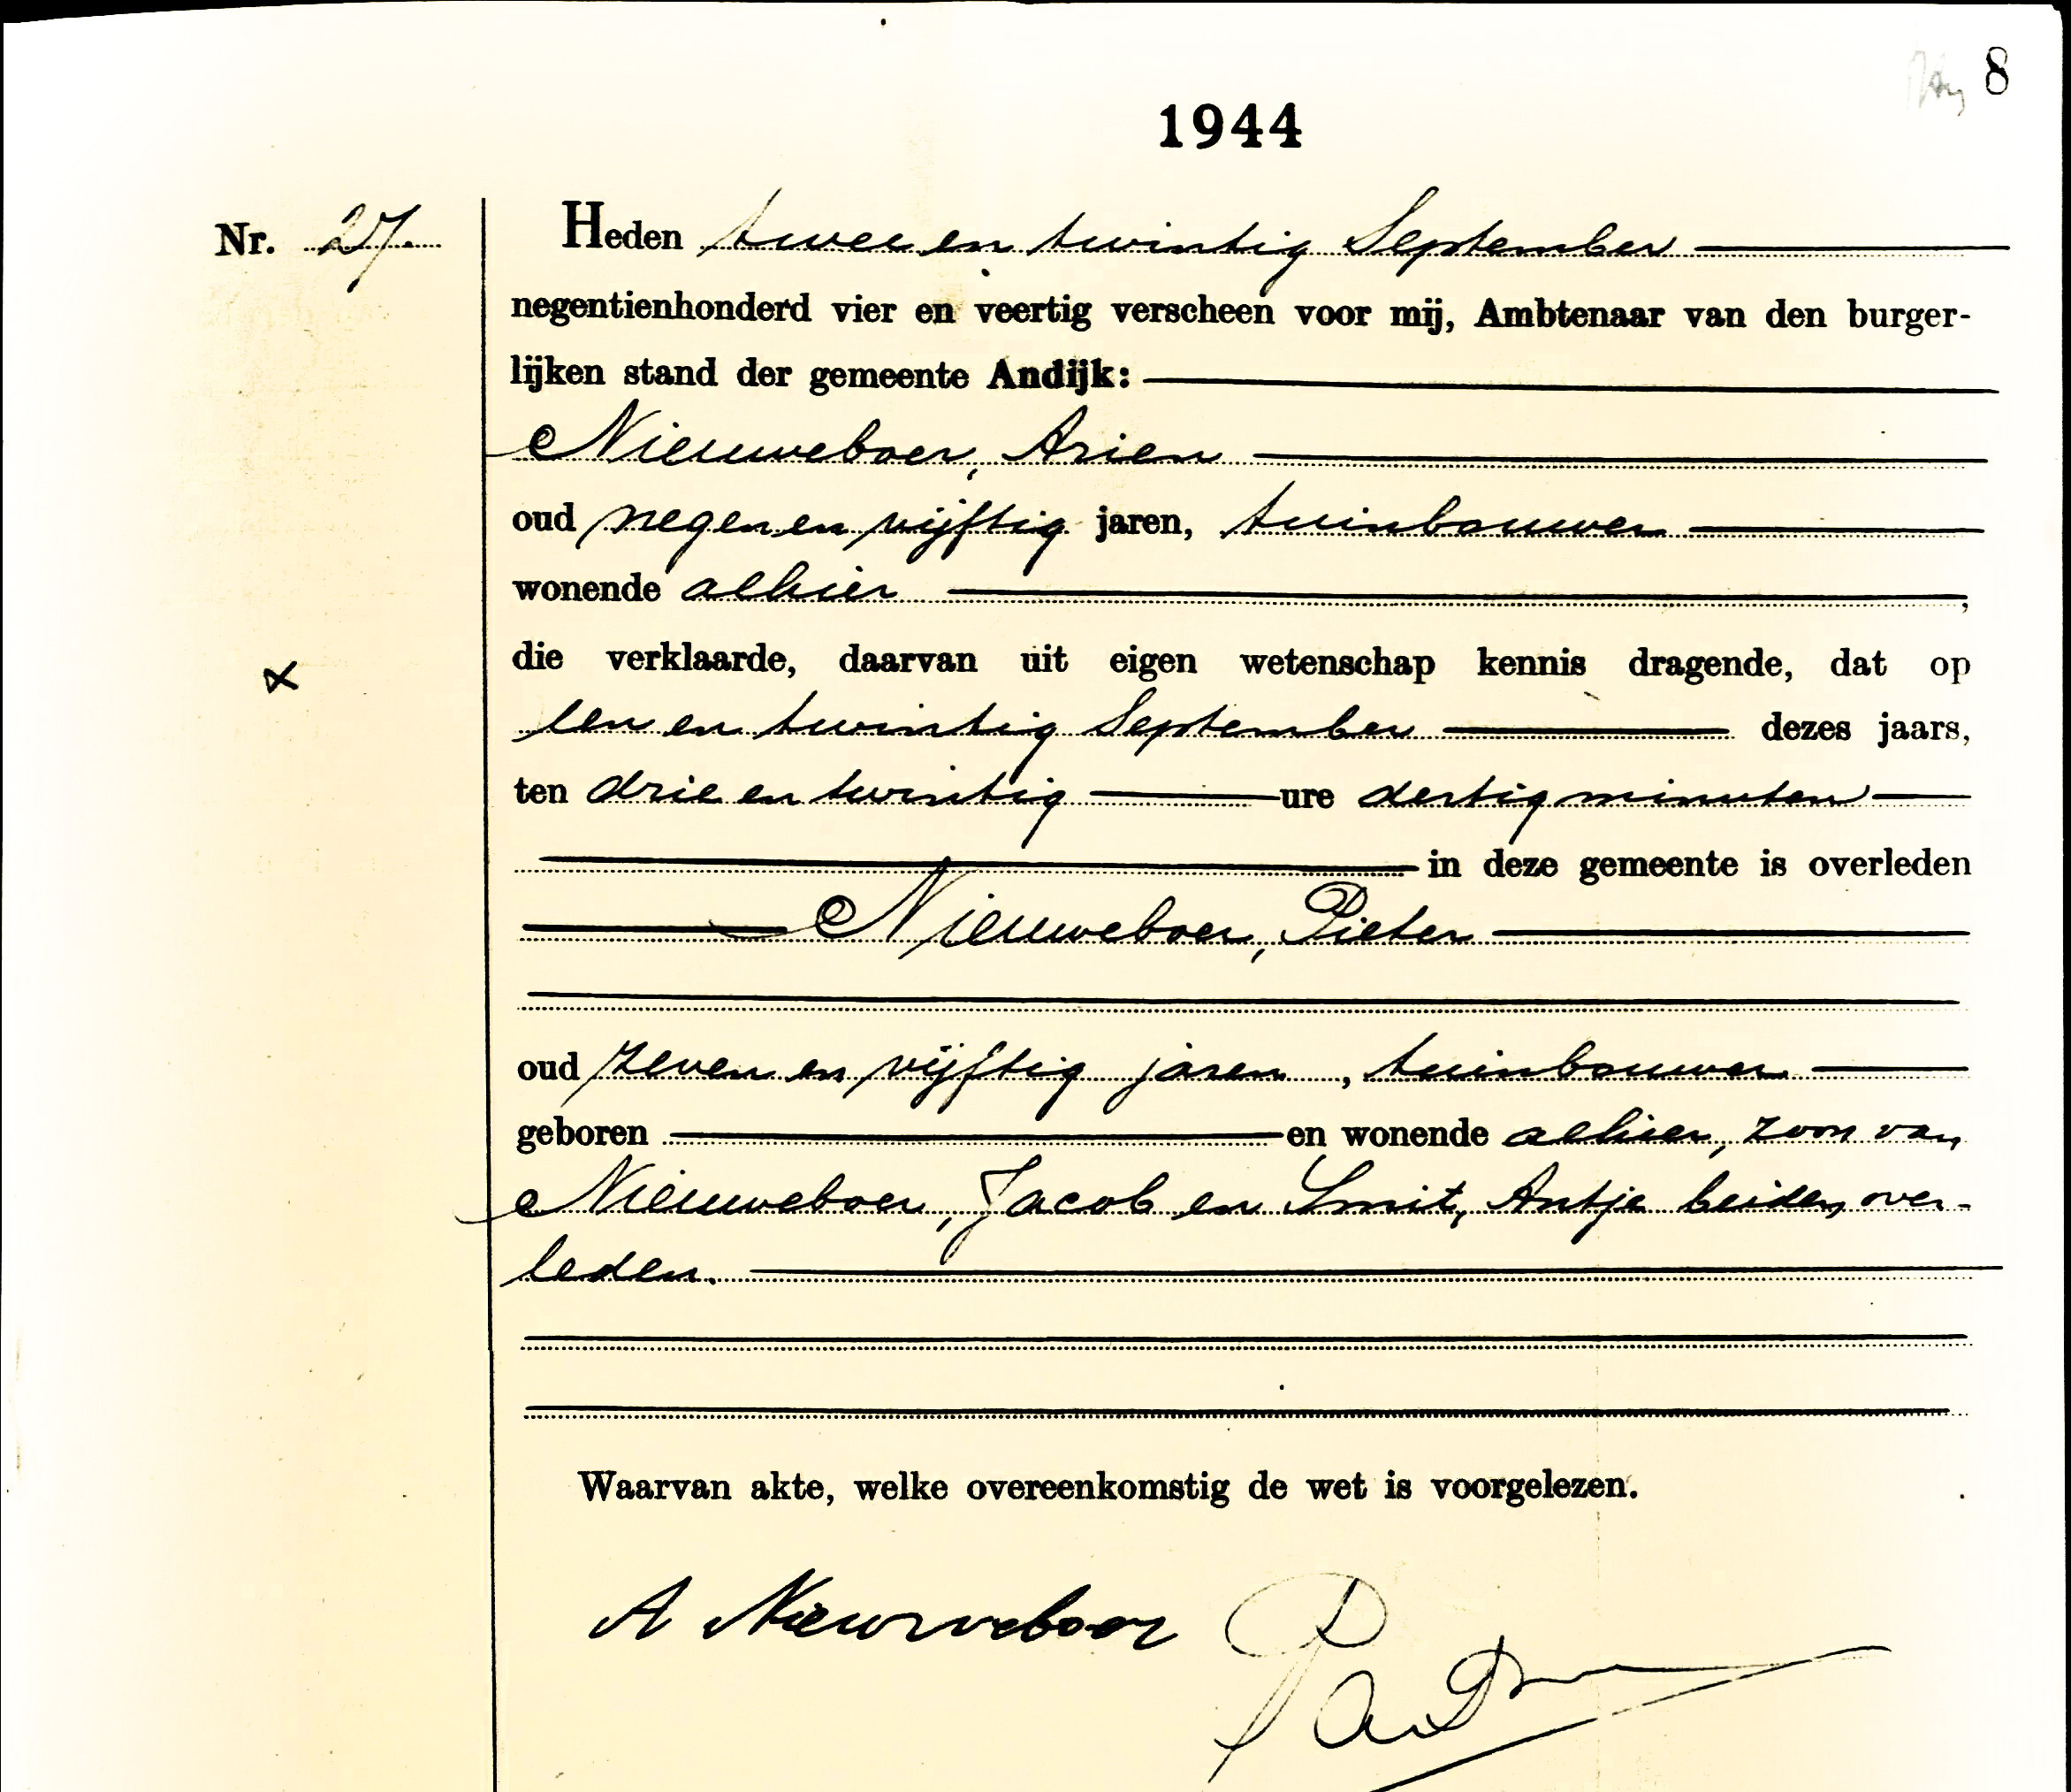 8
1944
Nr. 27.
Heden twee en twintig September
negentienhonderd vier en veertig verscheen voor mij, Ambtenaar van den burger-
lijken stand der gemeente Andijk:
Nieuweboer, Arien
oud negen en vijftig jaren, tuinbouwer
wonende alhier ,
die verklaarde, daarvan uit eigen wetenschap kennis dragende, dat op
een en twintig September dezes jaars,
ten drie en twintig ure dertig minuten
in deze gemeente is overleden
Nieuweboer, Pieter
oud zeven en vijftig jaren, tuinbouwer
geboren en wonende alhier, zoon van
Nieuweboer, Jacob en Smit, Antje beiden over-
leden.
Waarvan akte, welke overeenkomstig de wet is voorgelezen.
A Nieuweboer